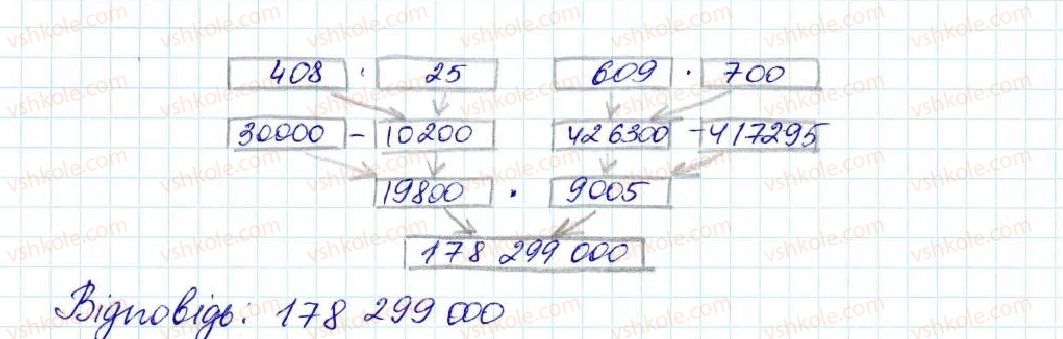 408 · 25 609 · 700
30000 - 10200 426300 - 417295
19800 · 9005
178 299 000
Відповідь: 178 299 000